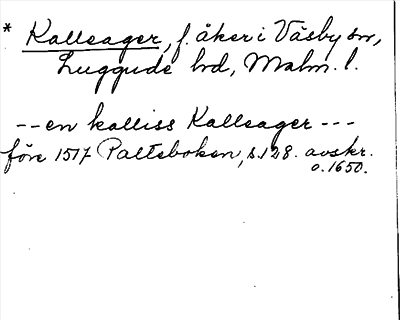 * Kallsager, f. åker i Väsby sn,
Luggude hd, Malm. l.
-- en kalliss Kallsager ---
före 1517 Palteboken, s. 128. avskr.
o. 1650.